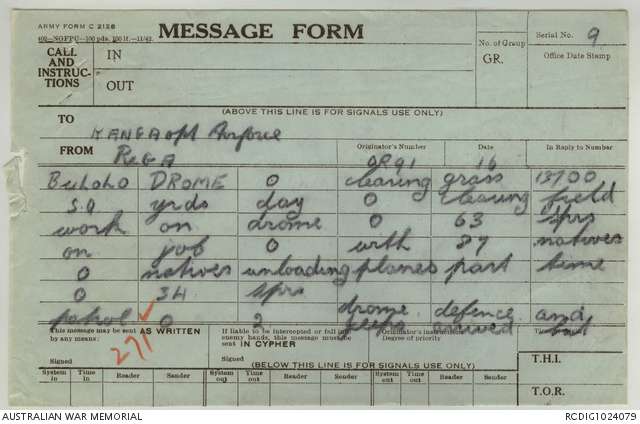 ARMY FORM C 2128
MESSAGE FORM
Serial No. 9
CALL AND INSTRUCTIONS
IN
OUT
No. of Group
GR.
Office Date Stamp
(ABOVE THIS LINE IS FOR SIGNALS USE ONLY)
TO
KANGA opt Airforce
FROM
Originator's Number
Date
In Reply to Number
REGA
OR91
16
BULOLO DROME O clearing grass
sq yrds day O clearing field
work on drome O 63 sprs
on job O with 89 natives
O natives unloading planes part time
O 34 sprs drome defence and
patrol O 2 jeeps arrived
271
This message may be sent AS WRITTEN by any means:
If liable to be intercepted or fall into enemy hands, this message must be sent IN CYPHER
Originator's Instructions
Degree of priority
Signed
Signed
(BELOW THIS LINE IS FOR SIGNALS USE ONLY)
T.H.I.
System in
Time in
Reader
Sender
System out
Time out
Reader
Sender
System out
Time out
Reader
Sender
T.O.R.
AUSTRALIAN WAR MEMORIAL
RCDIG1024079